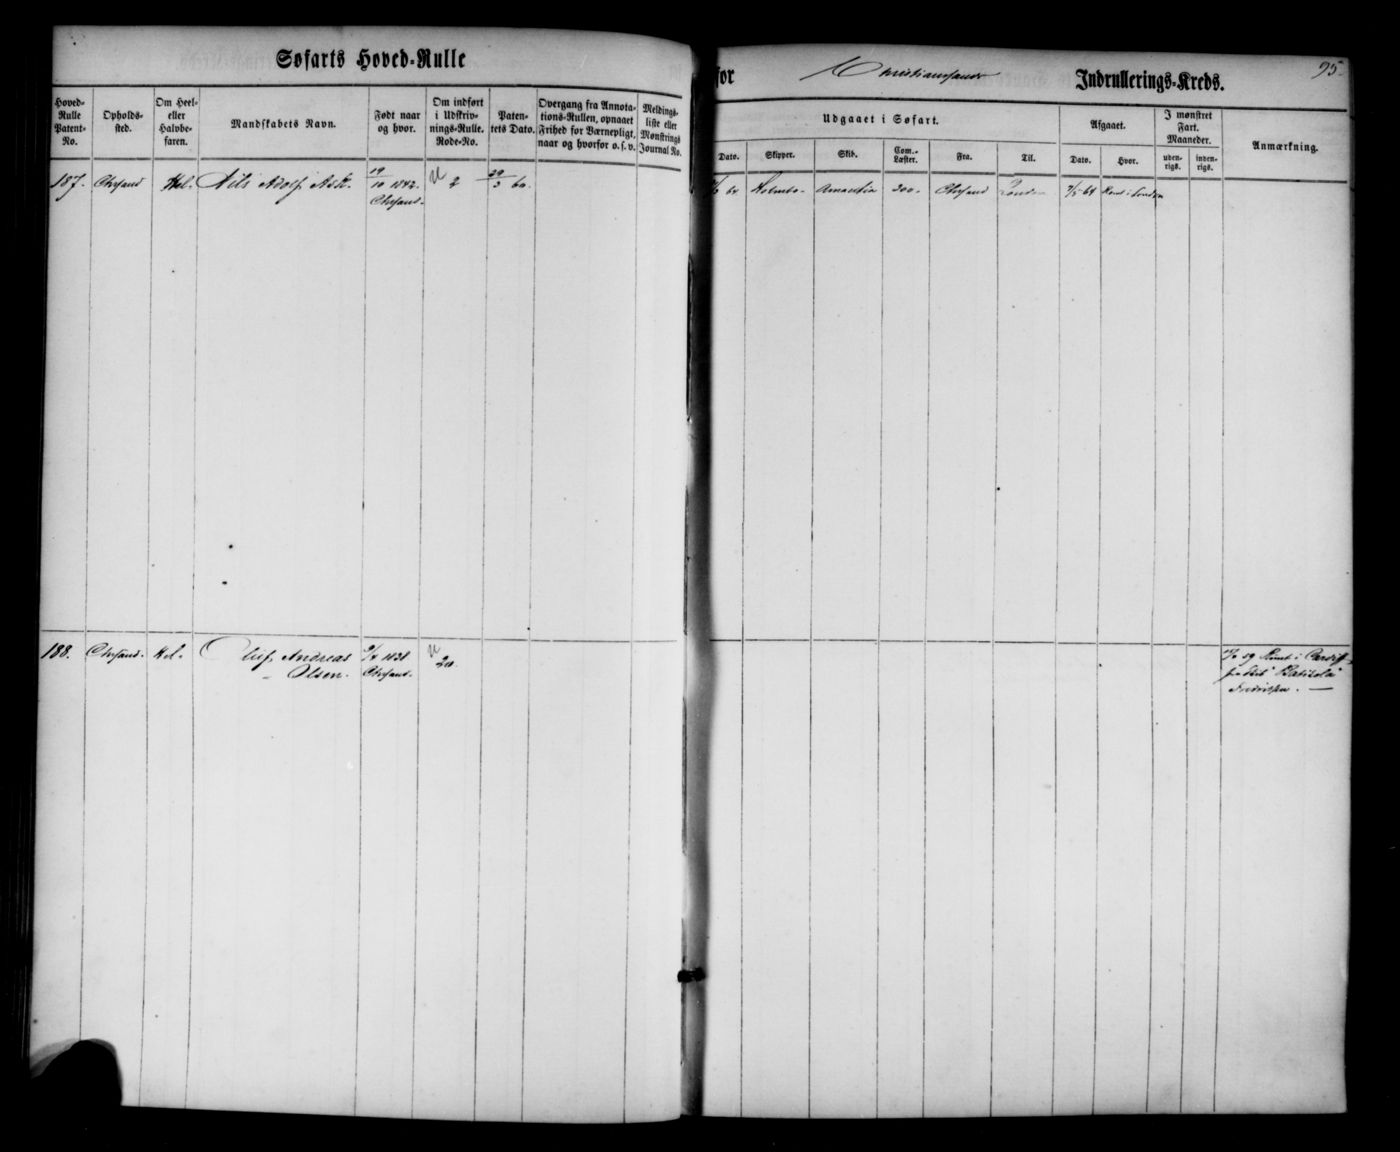 Søfarts Hoved-Rulle
for Christianssands Indrullerings-Kreds.
95.
Hoved-
Rulle
Patent-
No.
Opholds-
sted.
Om Heel-
eller
Halvbe-
faren.
Mandskabets Navn.
Født naar
og hvor.
Om indført
i Udskriv-
nings-Rulle.
Rode-No.
Paten-
tets Dato.
Overgang fra Annota-
tions-Rullen, opnaaet
Frihed for Værnepligt,
naar og hvorfor o. s. v.
Meldings-
liste eller
Mønstrings
Journal No.
Udgaaet i Søfart.
Dato.
Skipper.
Skib.
Com.-
Læster.
Fra.
Til.
Afgaaet.
Dato.
Hvor.
I mønstret
Fart.
Maaneder.
uden-
rigs.
inden-
rigs.
Anmærkning.
187. Chrsand Hel. Nils Adolf Ask. 19/10 1842. N 2 29/3 60.
Chrsand.
Holmbo. Amantia 300. Chrsand London Rømt i London
188. Chrsand. Hel. Oluf Andreas 1838 N 20.
Olsen. Chrsand.
59 Rømt i Cardiff
fra Skib